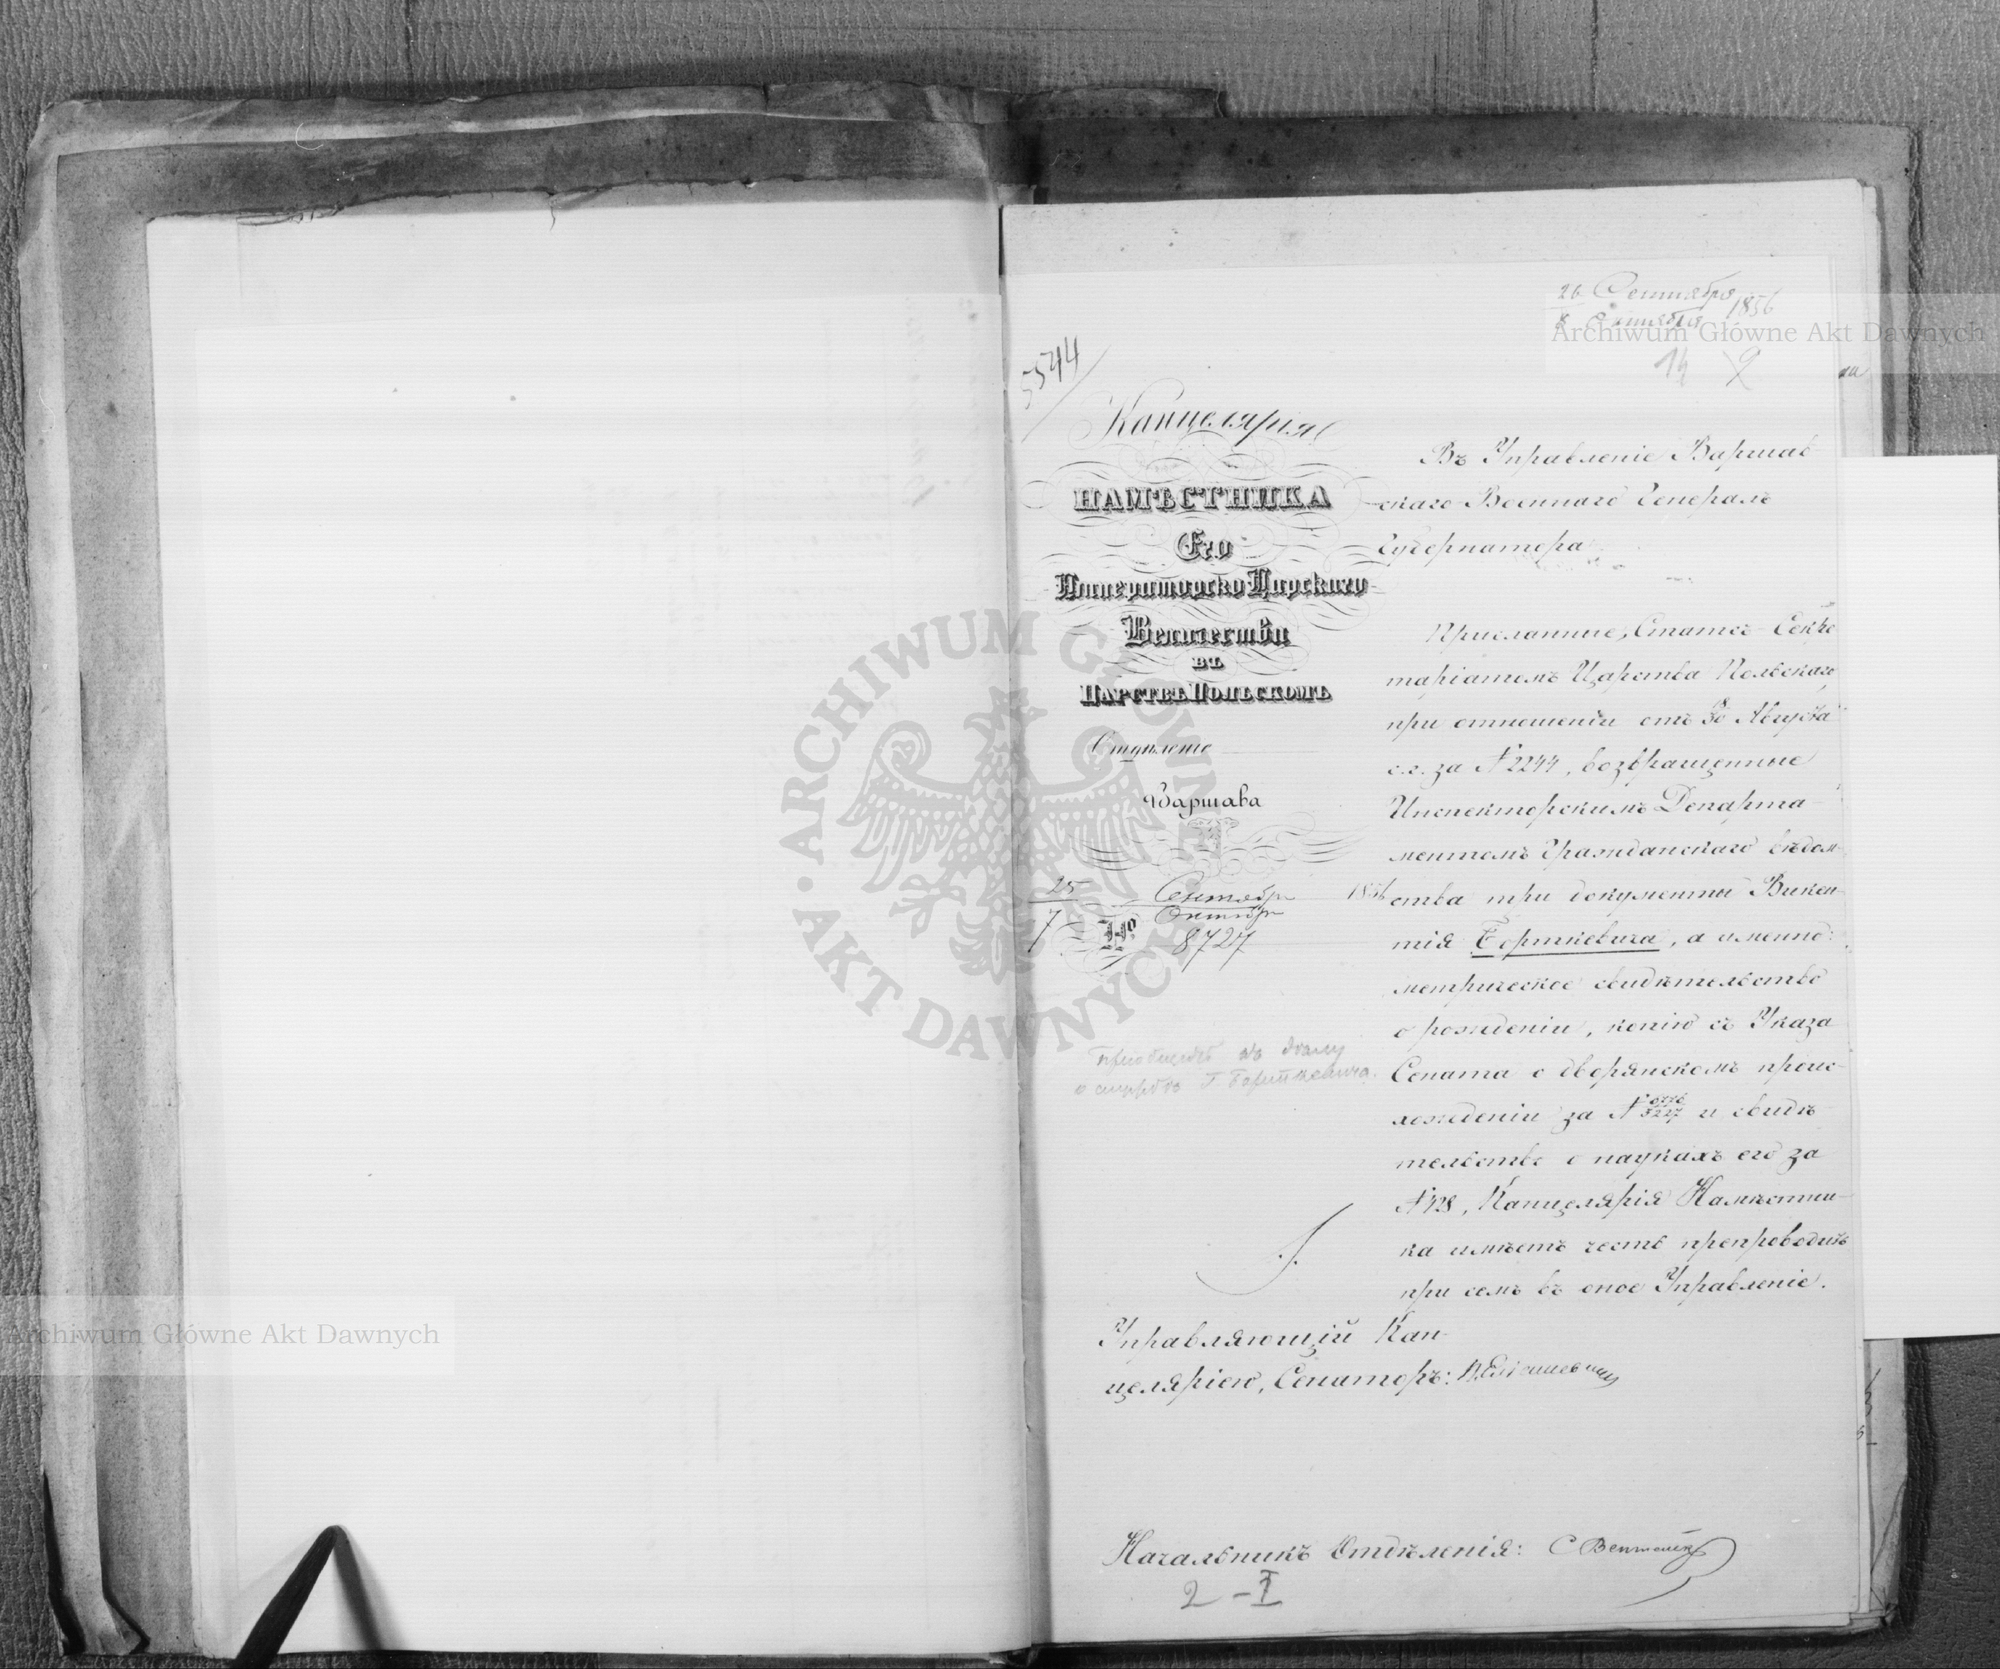 26 Сентября
8 Октября 1856
Archiwum Główne Akt Dawnych
14
5544
Канцелярія
НАМѢСТНИКА
Его
Императорско Царскаго
Величества
ВЪ
ЦАРСТВѢ ПОЛЬСКОМЪ
Варшава
25 Сентября 1856
7 Октября
№ 8727
Въ Управленіе Варшав
скаго Военнаго Генералъ
Губернатора
Присланные, Статсъ-Секре
таріатомъ Царства Польскаго,
при отношеніи отъ 30 Августа
с.г. за № 2244, возвращенные
Инспекторскимъ Департа-
ментомъ Гражданскаго вѣдом-
ства три документы Викен-
тія Борткевича, а именно:
метрическое свидѣтельство
о рожденіи, копію съ Указа
Сената о дворянскомъ проис-
хожденіи за № 5227 и свидѣ-
тельство о наукахъ его за
№ 128, Канцелярія Намѣстни-
ка имѣетъ честь препроводить
при семъ въ оное Управленіе.
къ дѣлу
о службѣ Г. Борткевича.
Управляющій Кан-
целяріею, Сенаторъ:
Начальникъ Отдѣленія:
2 - I
ARCHIWUM GŁÓWNE AKT DAWNYCH
Archiwum Główne Akt Dawnych